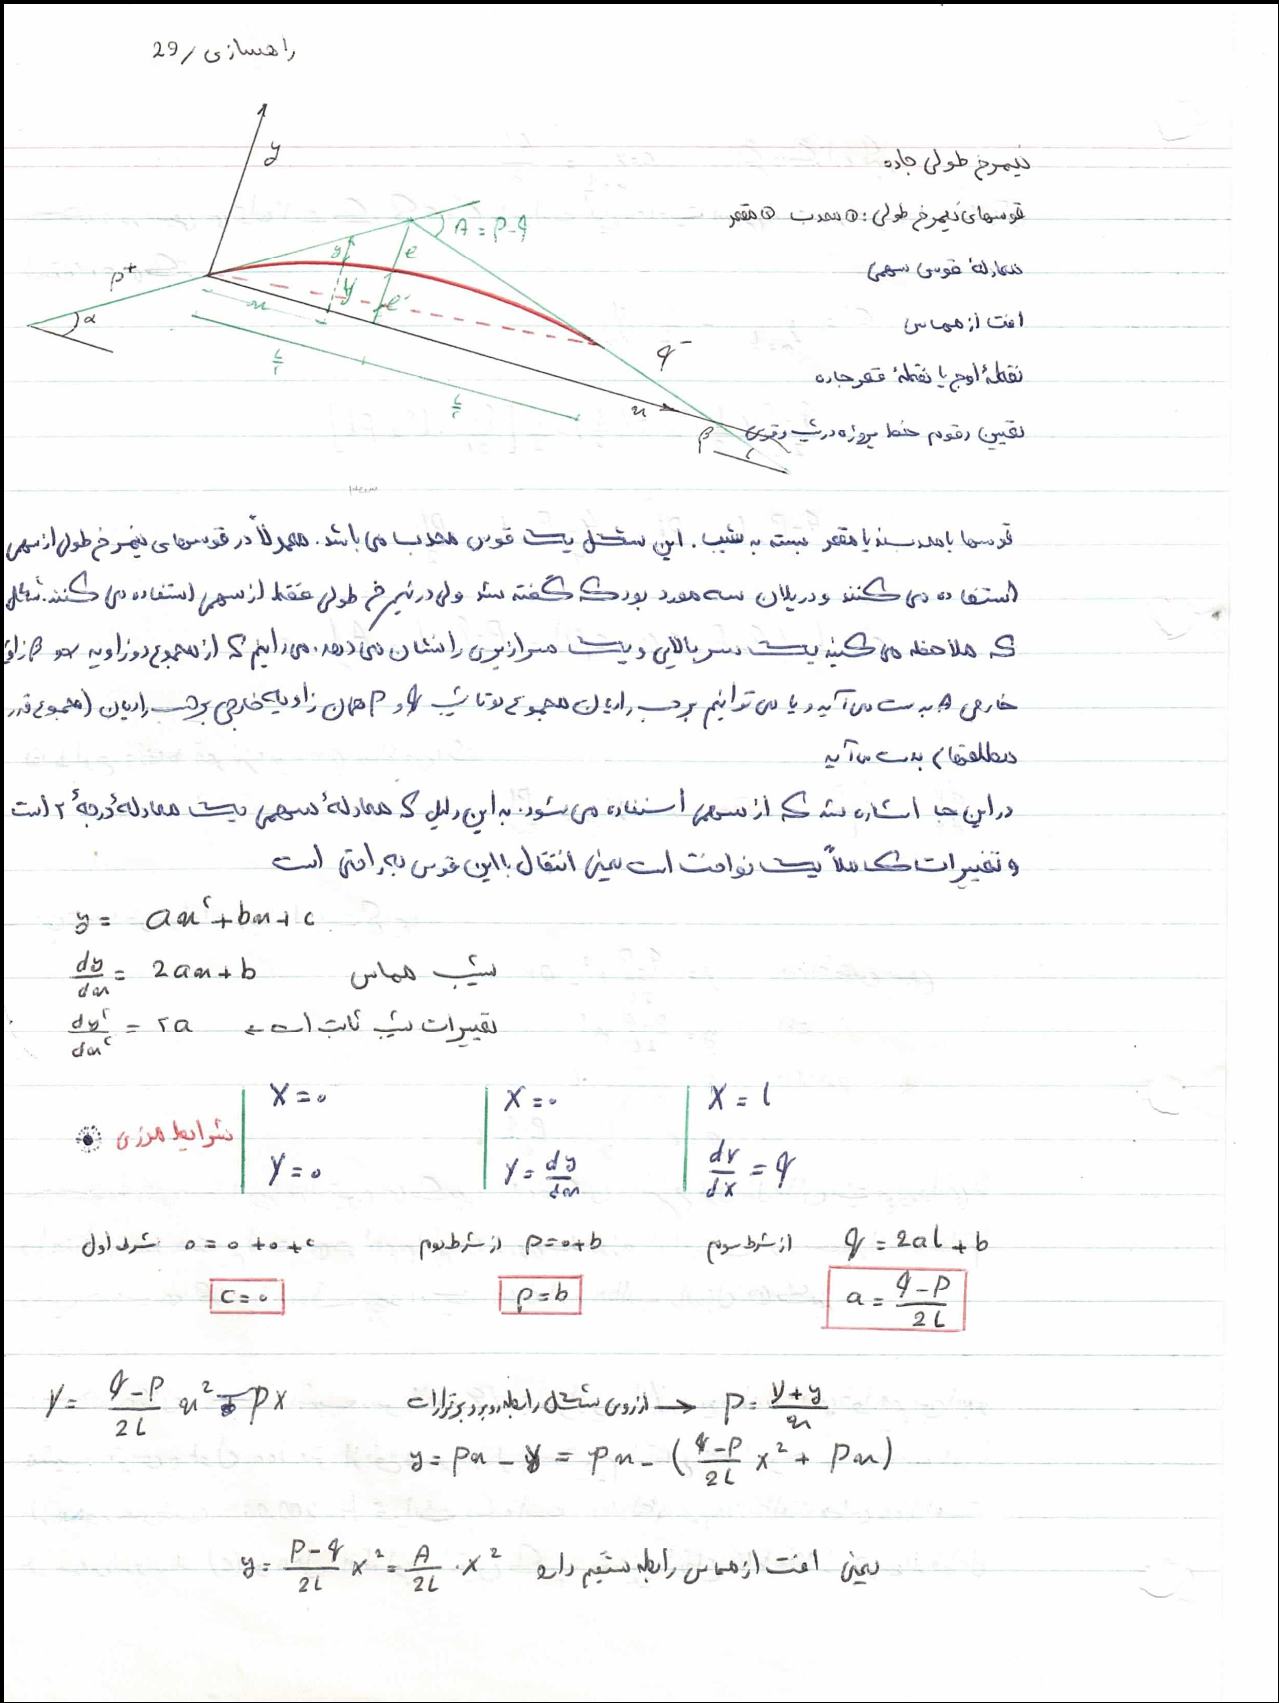 راهسازی / 29
نیمرخ طولی جاده
قوسهای نیمرخ طولی: ① محدب ② مقعر
معادلهٔ قوس سهمی
افت از مماس
نقطهٔ اوج یا نقطهٔ قعر جاده
تعیین رقوم خط پروژه در شیب و قوس
y
A = P-q
P+
α
y
Y
e
e'
x
L/2
L/2
q-
x
β
قوسها یا محدبند یا مقعر بسته به شیب. این شکل یک قوس محدب می باشد. معمولاً در قوسهای نیمرخ طولی از سهمی
استفاده می کنند و در پلان سه مورد بود که گفته شد ولی در نیمرخ طولی فقط از سهمی استفاده می کنند. شکل
که ملاحظه می کنید یک سر بالایی و یک سرازیری را نشان می دهد. می دانیم که از مجموع دو زاویه α و β زاویه
خارجی A بدست می آید و یا می توانیم بر حسب رادیان مجموع دو تا شیب q و P همان زاویه خارجی برحسب رادیان (مجموع قدر
مطلقها) بدست می آید
در این جا اشاره شد که از سهمی استفاده می شود. به این دلیل که معادلهٔ سهمی یک معادلهٔ درجهٔ ۲ است
و تغییرات کاملاً یک نواخت است یعنی انتقال با این قوس به راحتی است
y = ax² + bx + c
dy/dx = 2ax + b شیب مماس
dy²/dx² = ۲a ← تغییرات شیب ثابت است
شرایط مرزی X = ۰ X = ۰ X = L
Y = ۰ Y = dy/dx dY/dX = q
شرط اول ۰ = ۰ + ۰ + c از شرط دوم P = ۰ + b از شرط سوم q = 2aL + b
c = ۰ P = b a = q-P/2L
Y = q-P/2L x² + Px از روی شکل رابطه روبرو برقرار است → P = Y+y/x
y = Px - Y = Px - (q-P/2L x² + Px)
y = P-q/2L x² = A/2L . x² یعنی افت از مماس رابطه مستقیم دارد